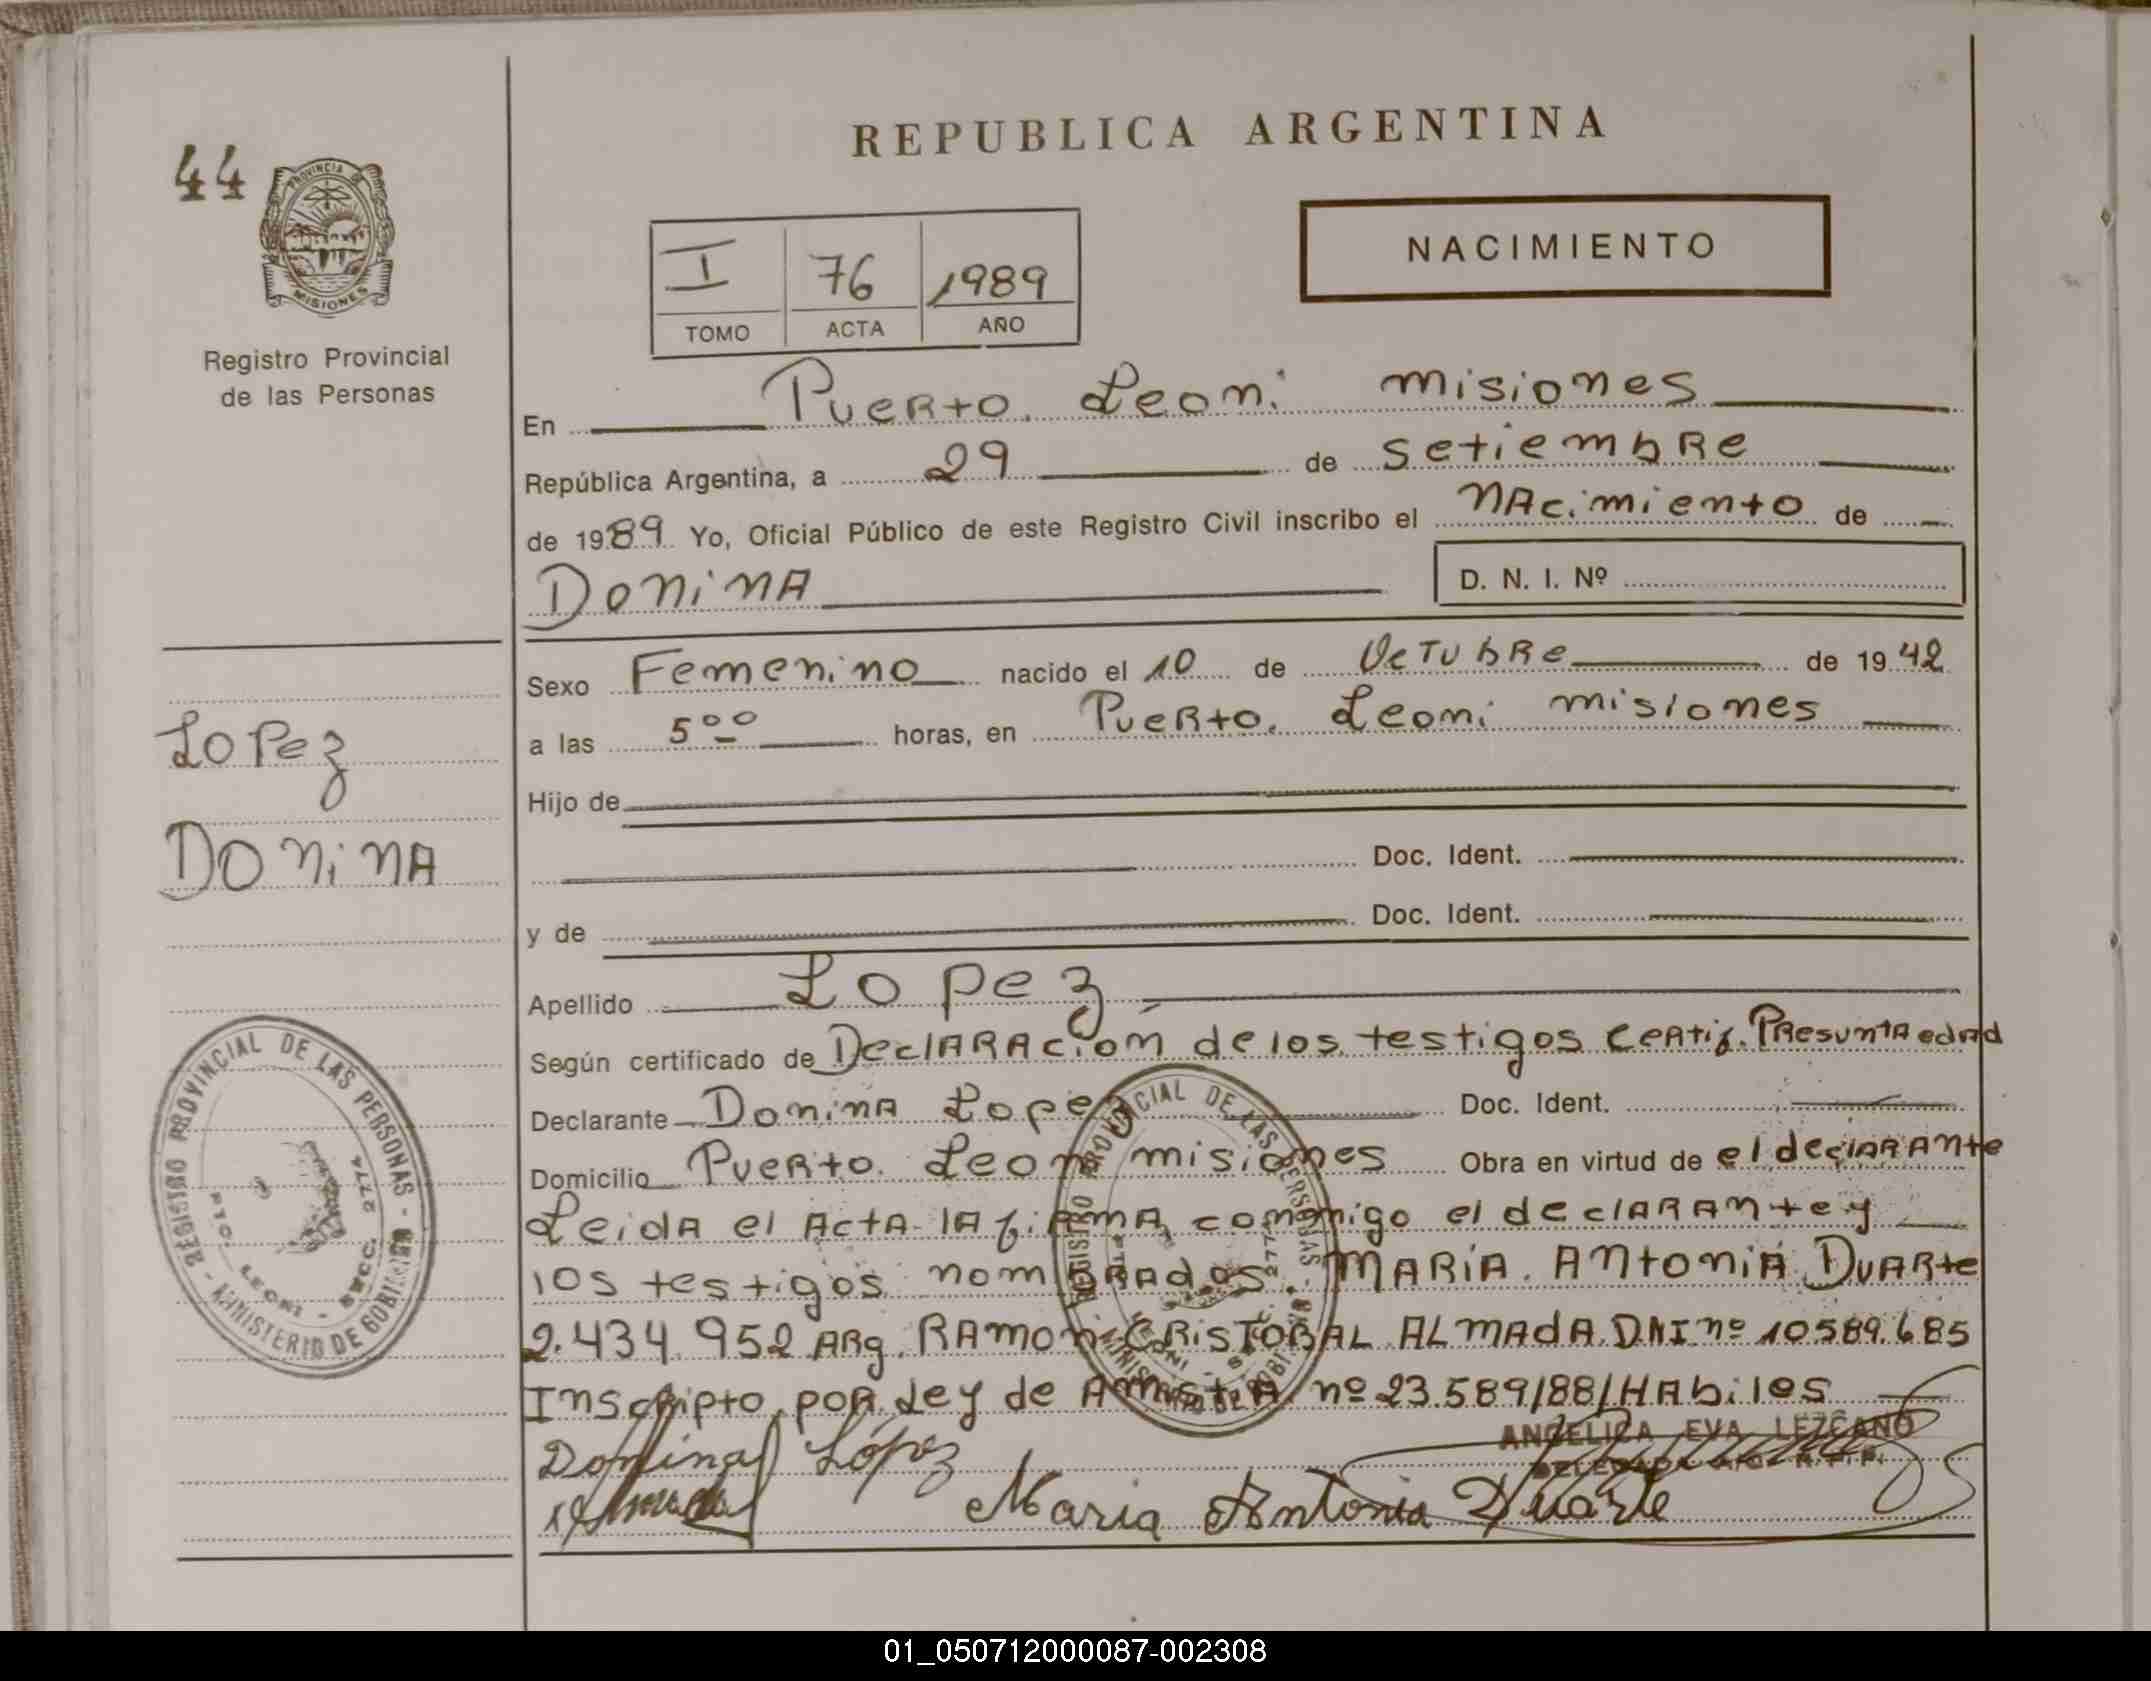 44
PROVINCIA DE
MISIONES
Registro Provincial
de las Personas
REPUBLICA ARGENTINA
I 76 1989
TOMO ACTA AÑO
NACIMIENTO
En Puerto Leoni misiones
República Argentina, a 29 de setiembre
de 1989 Yo, Oficial Público de este Registro Civil inscribo el nacimiento de
Donina
D. N. I. Nº
Sexo Femenino nacido el 10 de Octubre de 1942
a las 5⁰⁰ horas, en Puerto Leoni misiones
Hijo de
Doc. Ident.
y de Doc. Ident.
Apellido Lopez
Según certificado de Declaración de los testigos certif. Presunta edad
Declarante Donina Lopez Doc. Ident.
Domicilio Puerto Leoni misiones Obra en virtud de el declarante
Leida el Acta la firma conmigo el declarante y
los testigos nombrados Maria Antonia Duarte
2.434.952 Arg. Ramon Cristobal Almada DNI nº 10589.685
Inscripto por Ley de Amnistia nº 23.589/88/Habiles
Donina López
Maria Antonia Duarte
ANGELICA EVA LEZCANO
DELEGADA R.P.P.
Lopez
Donina
REGISTRO PROVINCIAL DE LAS PERSONAS - MINISTERIO DE GOBIERNO
PTO. LEONI - SECC. 2774
REGISTRO PROVINCIAL DE LAS PERSONAS
01_050712000087-002308